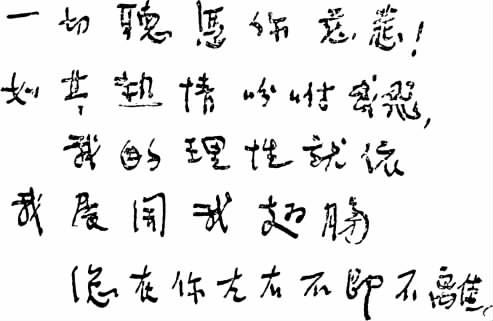 一切聽憑你!
如其熱情吩咐飛,
我的理性就依
我展開我翅膀
總在你左右不即不離。